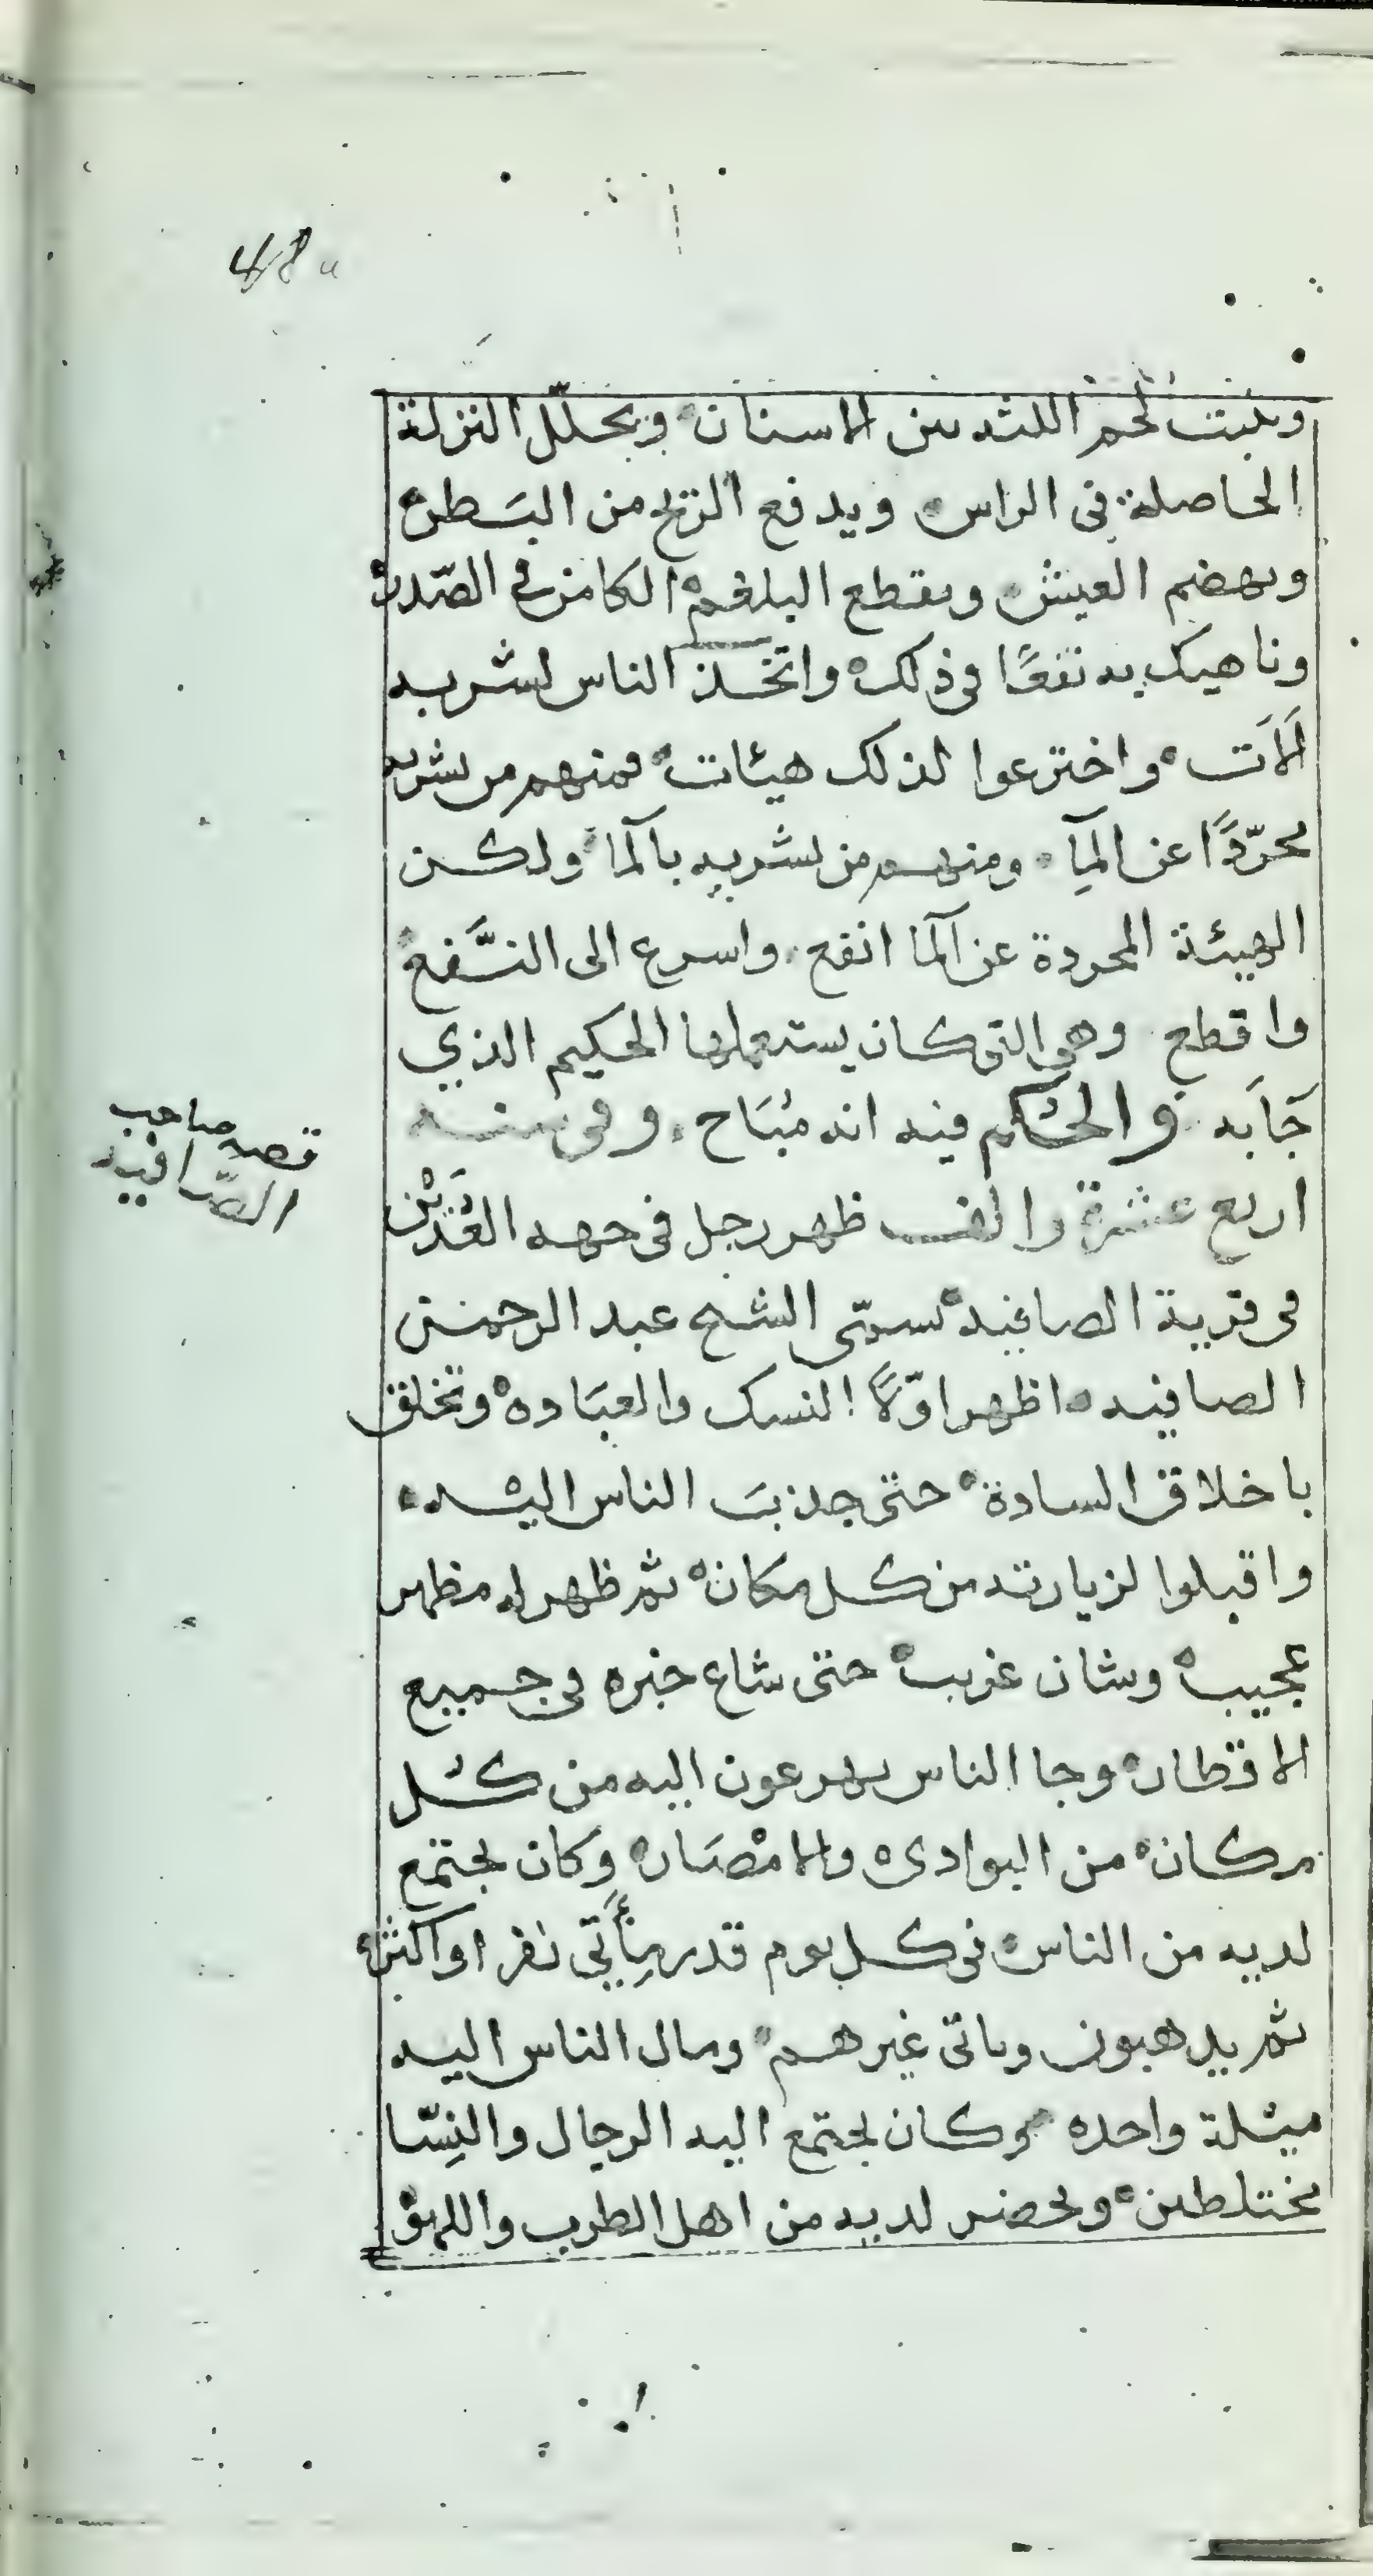 48a
وينبت لحم اللثه بين الاسنان ويحلّل النزلة
الحاصلة فى الراس ويدفع الريح من البَطن
ويهضم العيش ويقطع البلغم الكامن فى الصّدر
وناهيك به نفعًا فى ذلك واتخذ الناس لشربه
آلات واخترعوا لذلك هيئات فمنهم من يشربه
مجرّدًا عن المآء ومنهم من يشربه بالمآ ولكن
الهيئة المجردة عن المآ انفع واسرع الى النّفع
واقطع وهى التى كان يستعملها الحكيم الذي
جَابَه والحُكم فيه انه مُبَاح وفى سنه
اربع عشرة والف ظهر رجل فى جهه
فى قرية الصافيه يسمّى الشيخ عبد الرحمن
الصافيه اظهر اوّلًا النسك والعبَاده وتخلق
باخلاق السادة حتى جذبَت الناس اليه
واقبلوا لزيارته من كل مكان ثم ظهر له مظهر
عجيب وشان غريب حتى شاع خبره فى جميع
الاقطار وجا الناس يهرعون اليه من كل
مكان من البوادى والامْصَار وكان يجتمع
لديه من الناس فى كل يوم قدر مِأَتي نفر او اكثر
ثم يذهبون وياتى غيرهم ومال الناس اليه
ميْلة واحده وكان يجتمع اليه الرجال والنِسّا
مختلطين ويحضر لديه من اهل الطرب واللهوْ
قصه صاحب
الصّافيه